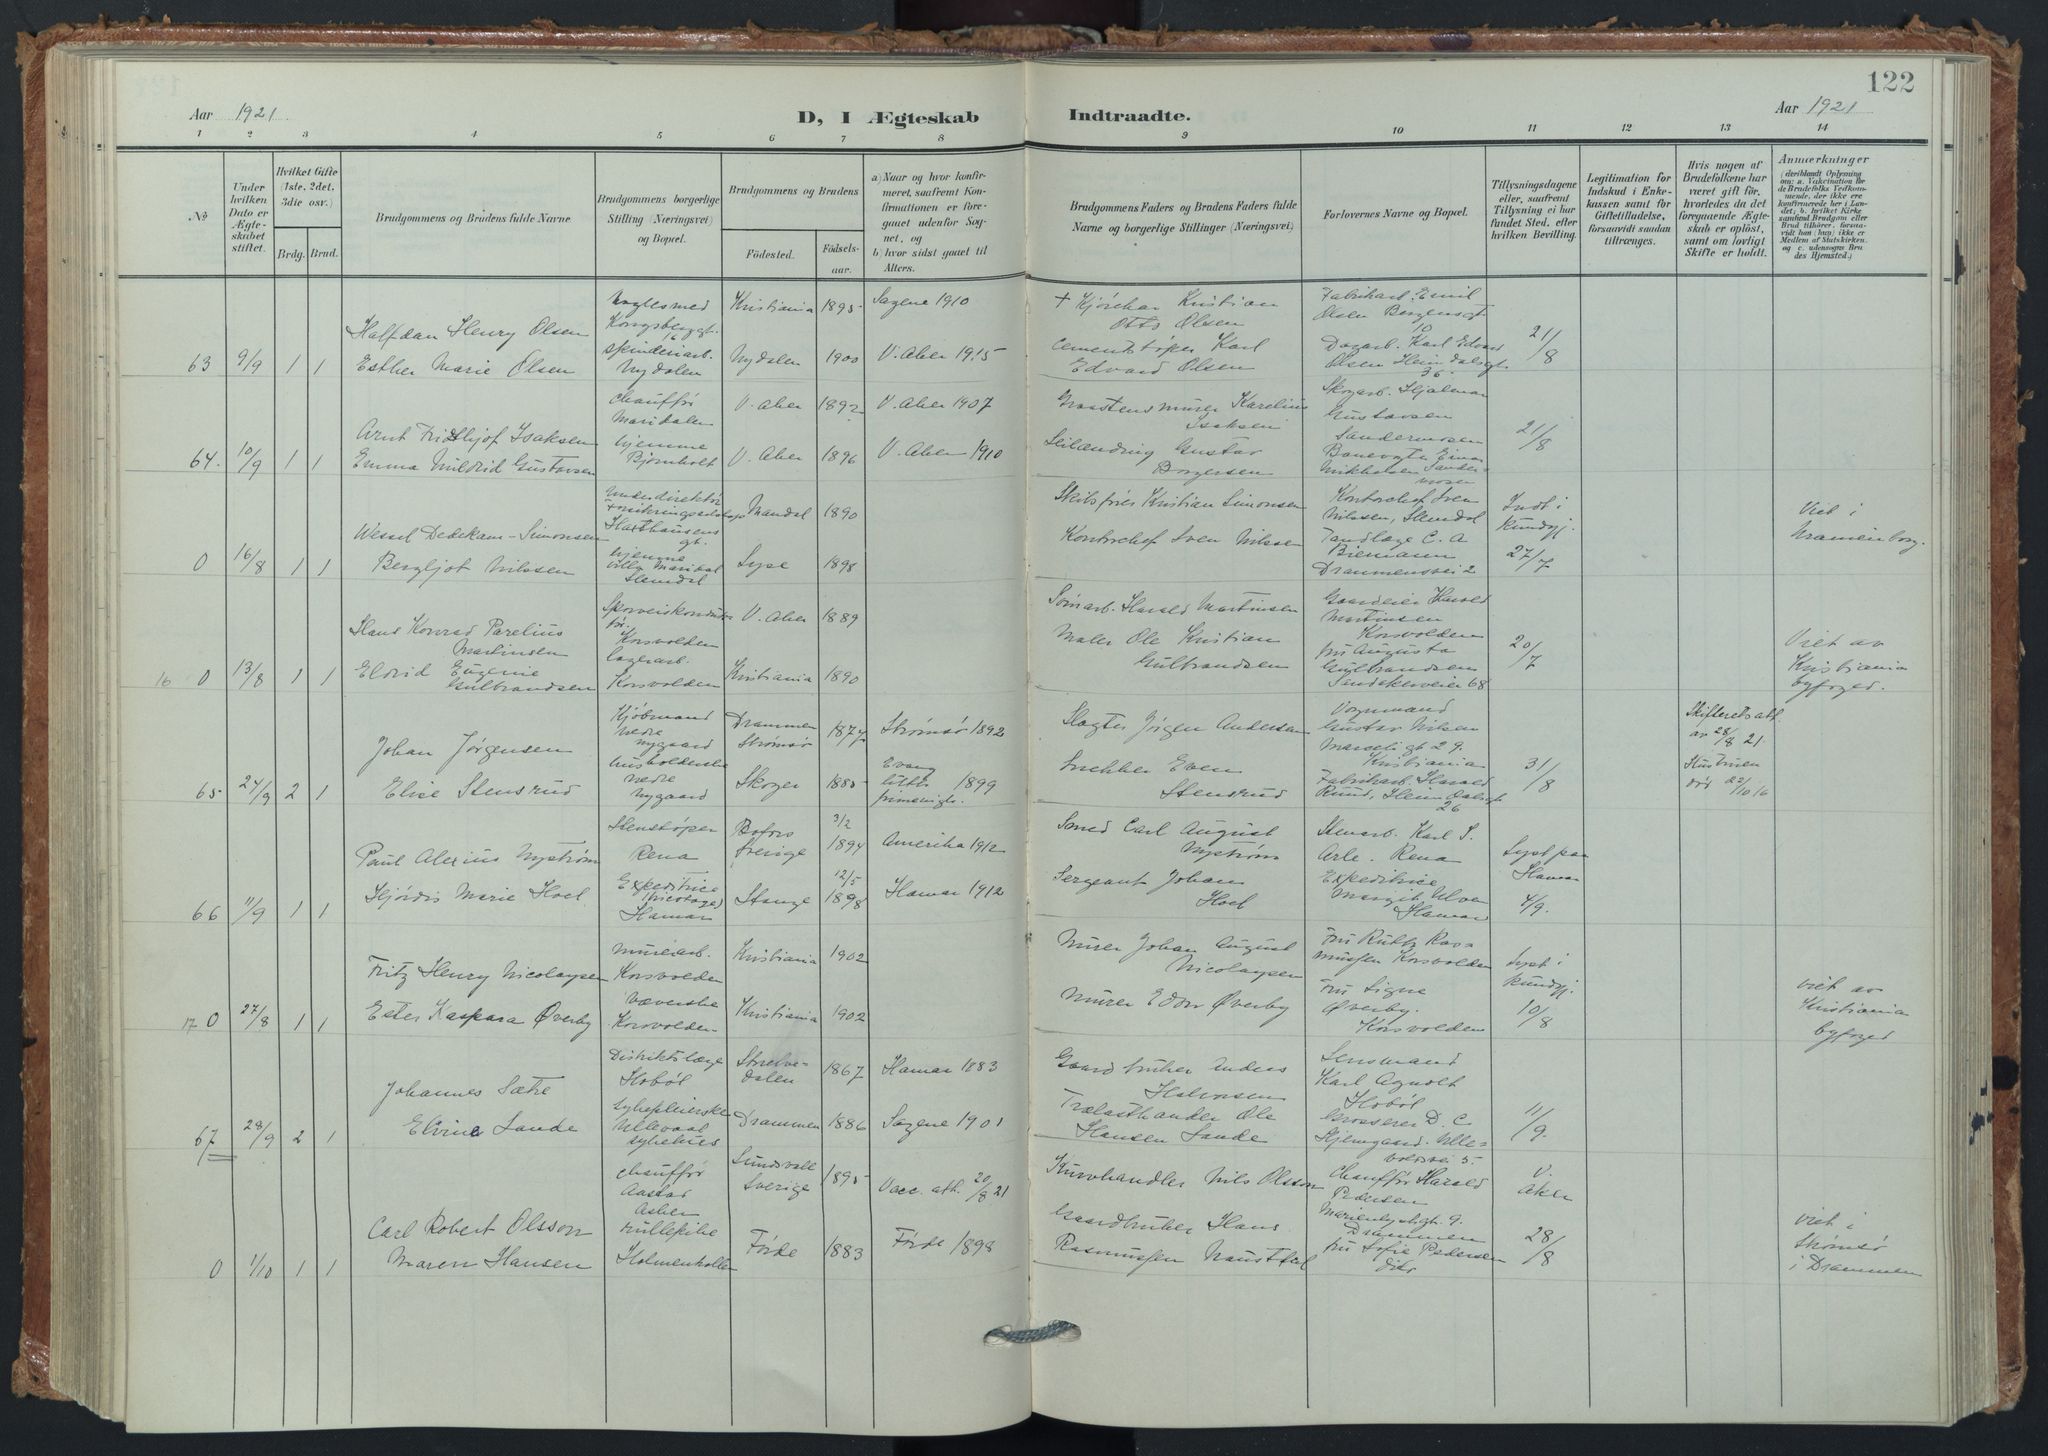 122
Aar 1921
D, I Ægteskab
Indtraadte.
Aar 1921
1 2 3 4 5 6 7 8 9 10 11 12 13 14
No
Under hvilken Dato er Ægteskabet stiftet.
Hvilket Gifte (1ste, 2det, 3die osv.)
Brdg. Brud.
Brudgommens og Brudens fulde Navne
Brudgommens borgerlige Stilling (Næringsvei) og Bopæl.
Brudgommens og Brudens
Födested.
Födselsaar.
a) Naar og hvor konfirmeret, saafremt Konfirmationen er foregaaet udenfor Sognet, og
b) hvor sidst gaaet til Alters.
Brudgommens Faders og Brudens Faders fulde Navne og borgerlige Stillinger (Næringsvei)
Forlovernes Navne og Bopæl.
Tillysningsdagene eller, saafremt Tillysning ei har fundet Sted, efter hvilken Bevilling.
Legitimation for Indskud i Enkekassen samt for Giftetilladelse, forsaavidt saadan tiltrænges.
Hvis nogen af Brudefolkene har været gift för, hvorledes da det foregaaende Ægteskab er oplöst, samt om lovligt Skifte er holdt.
Anmærkninger
(deriblandt Oplysning om: a. Vakcination for de Brudefolks Vedkommende, der ikke ere konfirmerede her i Landet; b. hvilket Kirkesamfund Brudgom eller Brud tilhører, forsaavidt han (hun) ikke er Medlem af Statskirken, og c. udensogns Brudes Hjemsted.)
63 9/9 1 1
Halfdan Henry Olsen
Esther Marie Olsen
Kongsberggt. 16
spinderiarb.
Nydalen
Kristiania 1895 Sagene 1910
Nydalen 1900 V. Aker 1915
+ Kjørekar Kristian
Otto Olsen
Cementstøper Karl
Edvard Olsen
Fabrikarb. Emil
Olsen Bergensgt
10
Dagarb. Karl Edvard
Olsen Heimdalsgt
36
21/8
64. 10/9 1 1
Arnt Fridthjof Isaksen
Emma Mildrid Gustavsen
chauffør
Maridalen
hjemme
Bjørnholt
V. Aker 1892 V. Aker 1907
V. Aker 1896 V. Aker 1910
Graastensmurer Karelius
Isaksen
Gustav
Borgersen
Skogarb. Hjalmar
Gustavsen
Sandermosen
Banevogter Einar
Mikkelsen Sandermosen
21/8
0 16/8 1 1
Wessel Dedekam-Simonsen
Bergljot Nilssen
Underdirektør
Harthausens
gt.
hjemme
Villa
Slemdal
Mandal 1890
1898
Skibsfører Kristian Simonsen
Kontorchef Sven Nilssen
Kontorchef Sven
Nilssen, Slemdal
Tandlæge C. A
Biemann
Drammensvei 2
Indt i
Kundgj.
27/7
Viet i
Uranienborg.
16 0 13/8 1 1
Hans Konrad Parelius
Martinsen
Eldrid Eugenie
Gulbrandsen
Sporveiskonduktør.
Korsvolden
lagerarb.
Korsvolden
V. Aker 1889
Kristiania 1890
Harald Martinsen
Maler Ole Kristian
Gulbrandsen
Gaardeier Harald
Martinsen
Korsvolden
fru Augusta
Gulbrandsen
68
20/7
Viet av
Kristiania
byfoged.
65 24/9 2 1
Johan Jørgensen
Elise Stensrud
Kjøbmand
Nedre
Nygaard
husholderske
Nedre
Nygaard
Drammen
Strømsø 1874 Strømsø 1892
Skoger 1885 Evang
luth.
frimenigh. 1899
Slagter Jørgen Andersen
Snekker Even
Stensrud
Vognmand
Gustav Nilsen
29.
Kristiania
Fabrikarb. Harald
Ruud, Heimdalsgt
26
31/8
Skifteretsatt.
av 28/8 21
Hustruen
død 22/10 16
66 11/9 1 1
Paul Alexius Nystrøm
Hjørdis Marie Hoel
Stenstøper
Rena
Expeditrice
(tricotage)
Hamar
Bofors
Sverige 3/2 1894 Amerika 1912
Stange 12/5 1898 Hamar 1912
Smed Carl August
Nystrøm
Sergeant Johan
Hoel
Stenarb. Karl S.
Arle. Rena
Expeditrice
Margit Ulven
Hamar
Lyst paa
Hamar
4/9.
17 0 27/8 1 1
Fritz Henry Nicolaysen
Ester Kaspara Øverby
murerarb.
Korsvolden
Væverske
Korsvolden
Kristiania 1902
Kristiania 1902
Murer Johan August
Nicolaysen
Murer Edor Øverby
Fru Ruth Rasmussen Korsvolden
Fru Signe
Øverby.
Korsvolden
Lyst i
Kundgj.
10/8
viet av
Kristiania
byfoged
67 28/9 2 1
Johannes Sætre
Elvine Sande
Distriktslæge
Hobøl
Sykepleierske
Ullevaal
sykehus
Storelvedalen 1867 Hamar 1883
Drammen 1886 Sagene 1901
Gaardbruker Anders
Halvorsen
Trælasthandler Ole
Hansen Sande
Lensmand
Karl Agnolt
Hobøl
Grosserer D. C.
Hjemgaard. Ullevoldsvei 5.
11/9.
0 1/10 1 1
Carl Robert Olsson
Maren Hansen
chauffør
Aastad
Asker
rullepike
Holmenkollen
Sundsvall
Sverige 1895 Vacc. att. 20/8 21
Førde 1883 Førde 1898
Kurvhandler Nils Olsson
Gaardbruker Hans
Rasmussen Naustdal
Chauffør Harald
Pedersen
9.
Drammen
fru Sofie Pedersen
V.
Aker
28/8
viet i
Strømsø
i Drammen